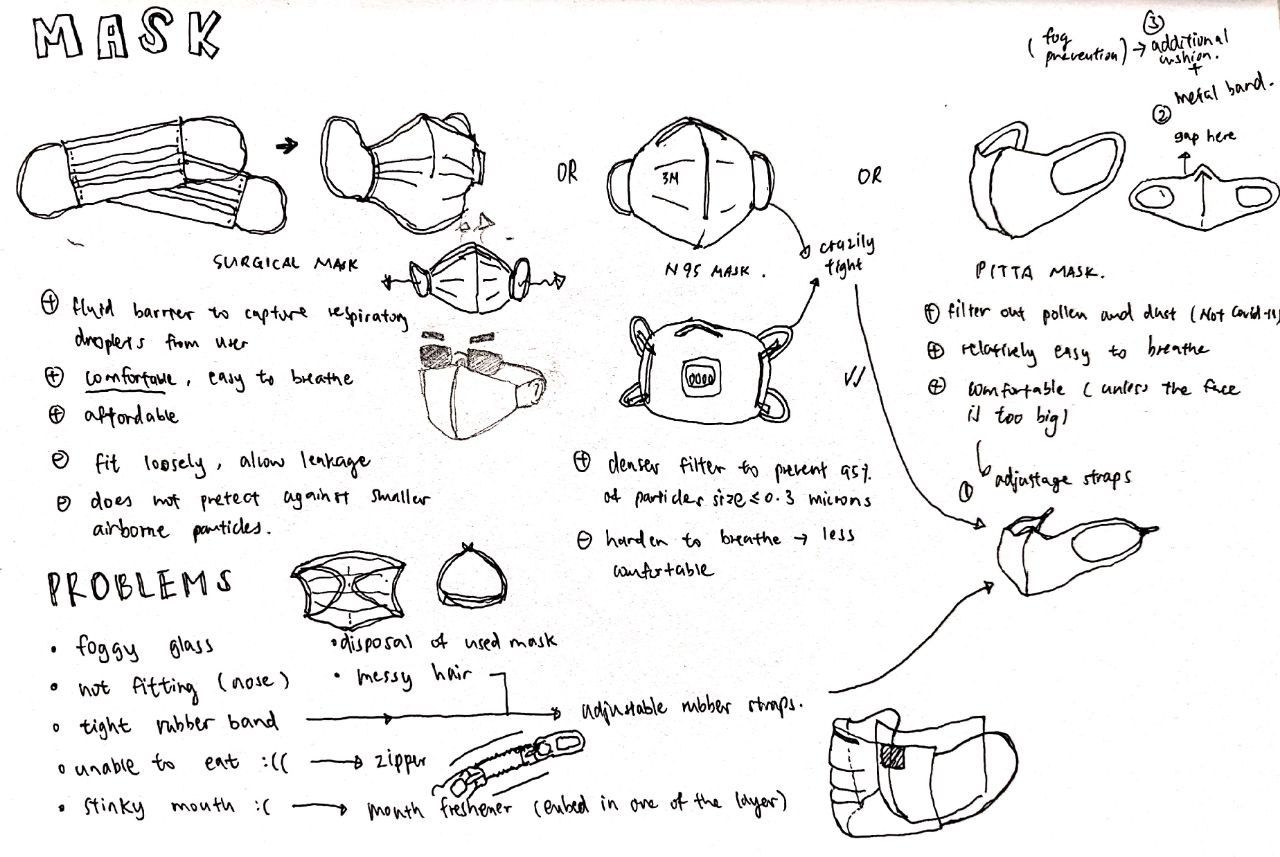 MASK
(fog prevention) → ③ additional cushion.
+
metal band.
②
gap here
OR
3M
OR
crazily
tight
SURGICAL MASK
N95 MASK.
PITTA MASK.
⊕ fluid barrier to capture respiratory
droplets from user
⊕ comfortable, easy to breathe
⊕ affordable
⊖ fit loosely, allow leakage
⊖ does not pretect against smaller
airborne particles.
⊕ denser filter to prevent 95%
of particles size ≤ 0.3 microns
⊖ harder to breathe → less
comfortable
⊕ filter out pollen and dust (Not Covid-19)
⊕ relatively easy to breathe
⊕ comfortable (unless the face
is too big)
① adjustage straps
PROBLEMS
• foggy glass
• not fitting (nose)
• tight rubber band
• unable to eat :(( → zipper
• stinky mouth :( → mouth freshener (embed in one of the layer)
• disposal of used mask
• messy hair
adjustable rubber straps.